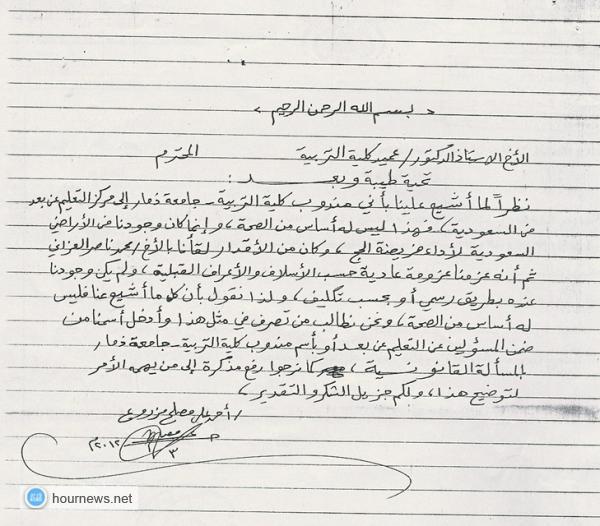 < بسم الله الرحمن الرحيم >
الأخ الاستاذ الدكتور/ عميد كلية التربية المحترم
تحية طيبة وبعـــــد :
نظراً لما أشيع علينا بأني مندوب كلية التربية - جامعة ذمار إلى مركز التعليم عن بعد
في السعودية، فهذا ليس له أساس من الصحة، وإنما كان وجودنا في الأراضي
السعودية لأداء فريضة الحج، وكان من الأقدار لقأنا بالأخ/ محمد ناصر العزاني
ثم أنه عزمنا عزومة عادية حسب الأسلاف والأعراف القبلية، ولم يكن وجودنا
عنده بطريق رسمي أو بحسب تكليف، ولذا نقول بأن كل ما أشيع عنا فليس
له أساس من الصحة، ونحن نطالب من تصرف في مثل هذا وأدخل أسمنا من
ضمن المسؤلين عن التعليم عن بعد أو بأسم مندوب كلية التربية - جامعة ذمار
بالمسألة القانونية، كما نرجوا رفع مذكرة إلى من يهمه الأمر
لتوضيح هذا، ولكم جزيل الشكر والتقدير،
/ أحمد علي مصلح
٣ / ٢٠١٢م
hournews.net